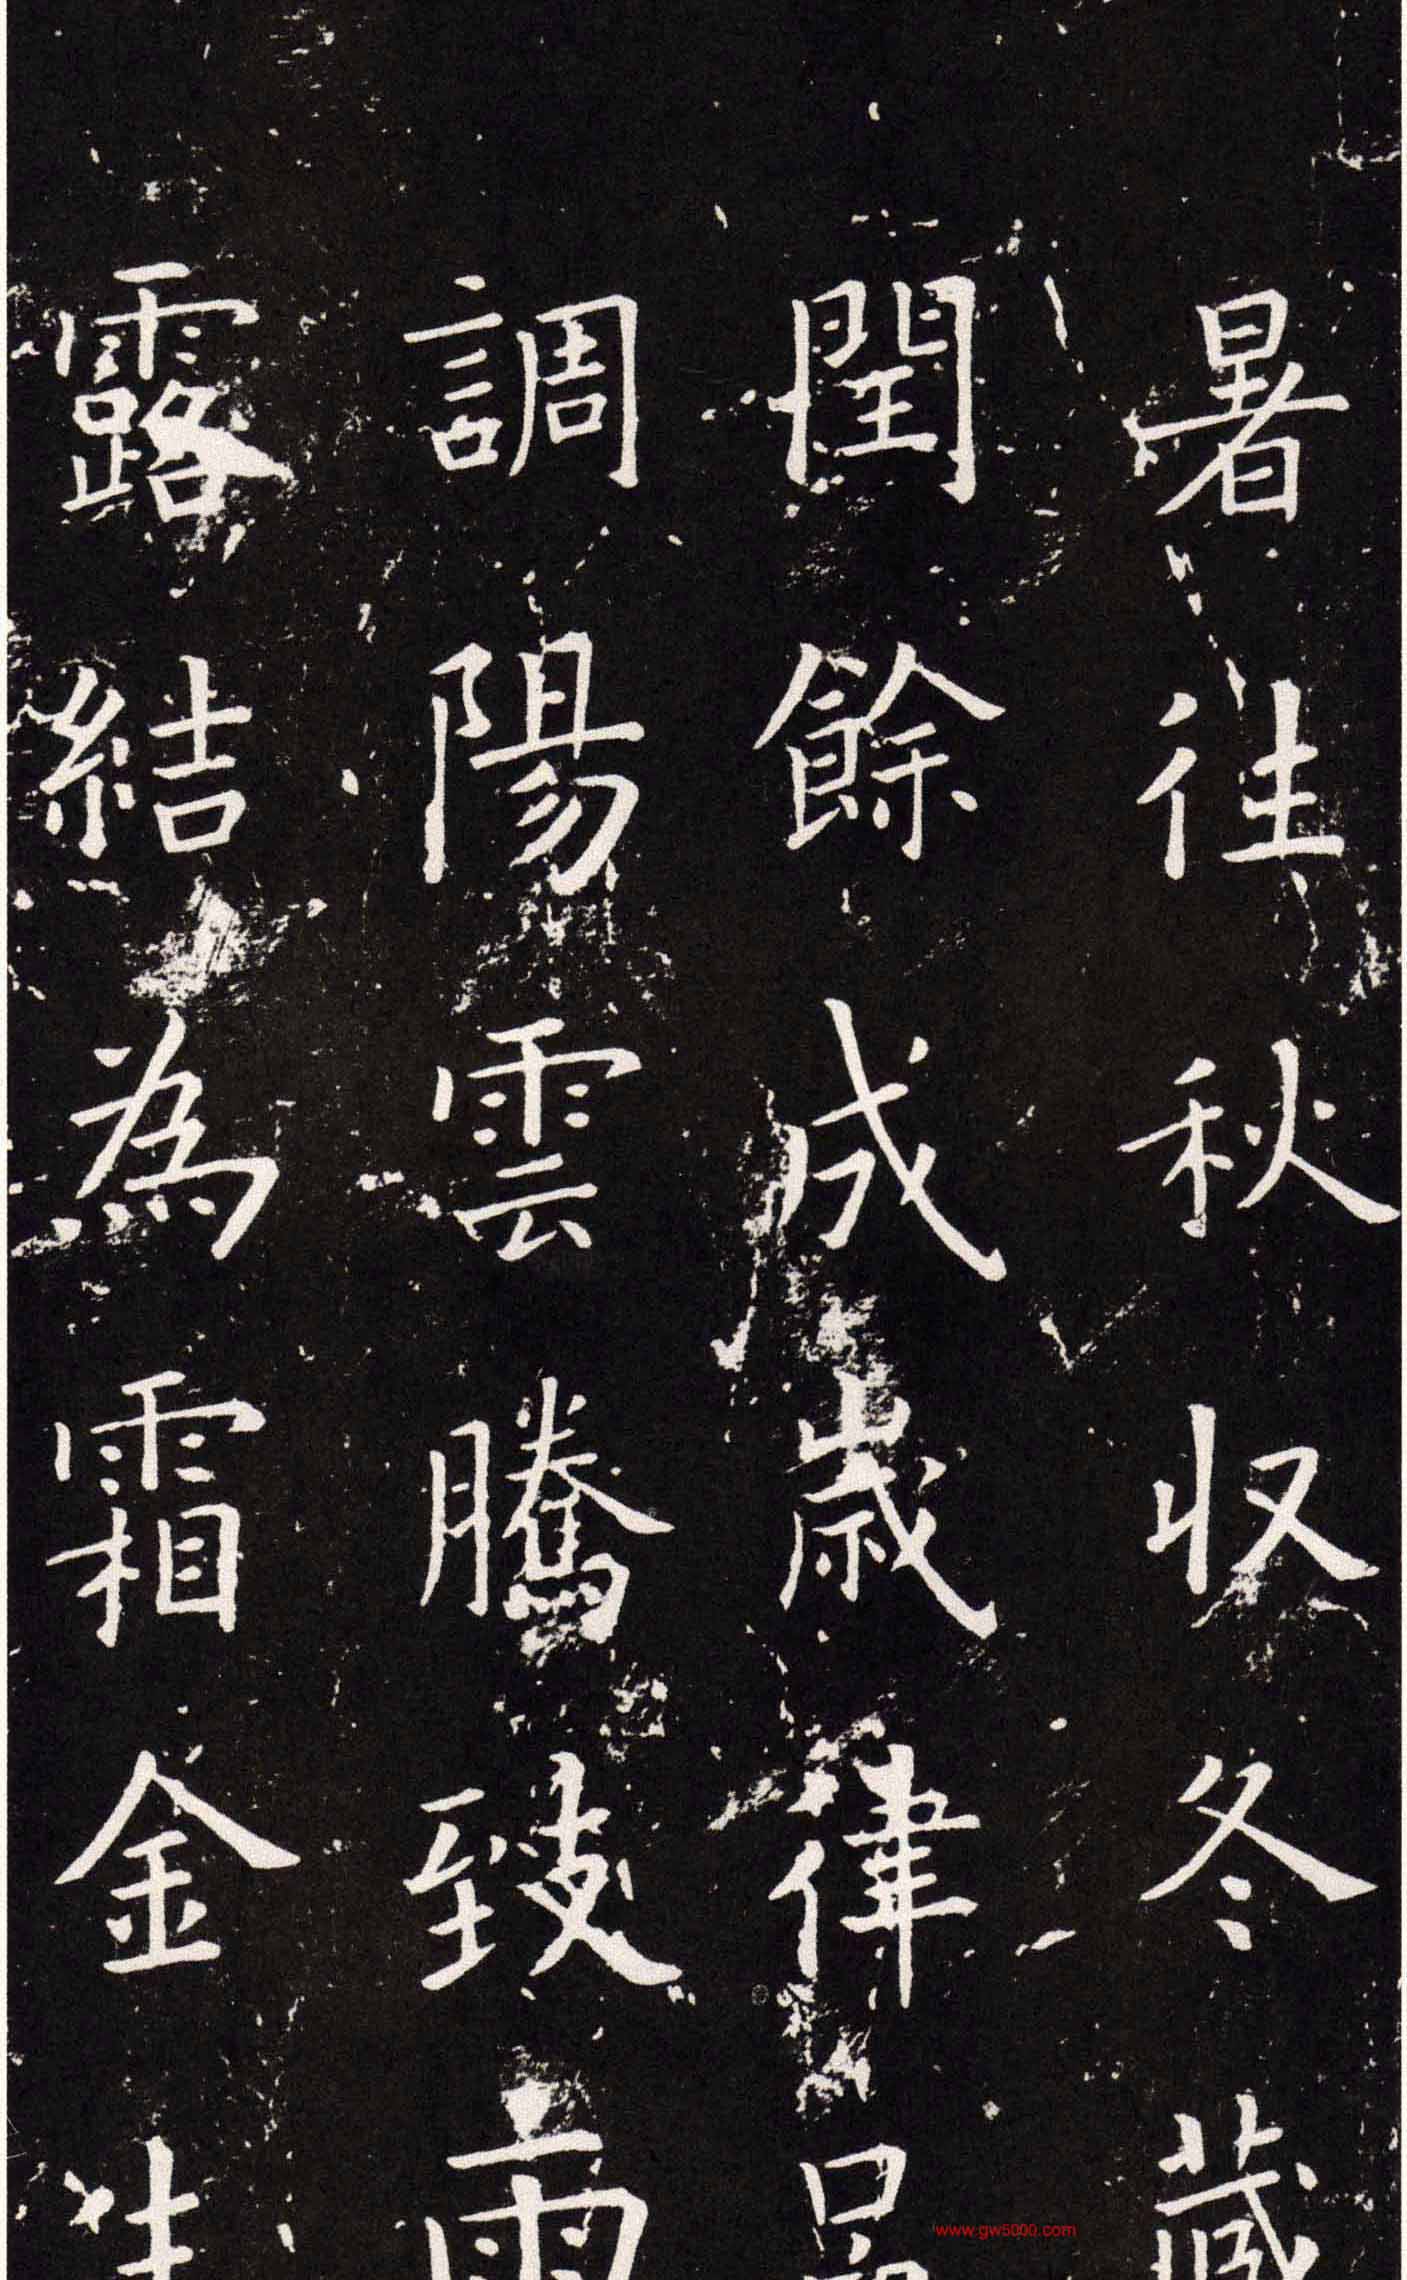 暑往秋収冬藏
閏餘成歲律呂
調陽雲騰致雨
露結為霜金生
www.gw5000.com